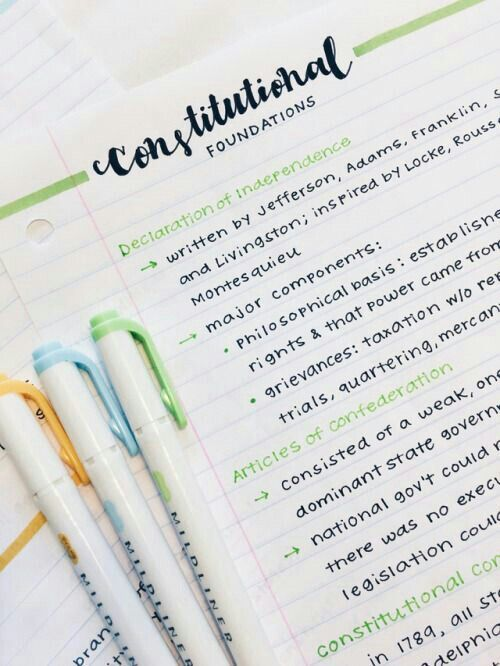 Constitutional
FOUNDATIONS
Declaration of Independence
→ written by Jefferson, Adams, Franklin,
and Livingston; inspired by Locke,
Montesquieu
→ major components:
• Philosophical basis:
rights & that power came from
• grievances: taxation w/o
trials, quartering,
Articles of Confederation
→ consisted of a weak,
dominant state
→ national gov't could
there was no
legislation
Constitutional
in 1789, all
MIDLINER
MIDLINER
MIDLINER